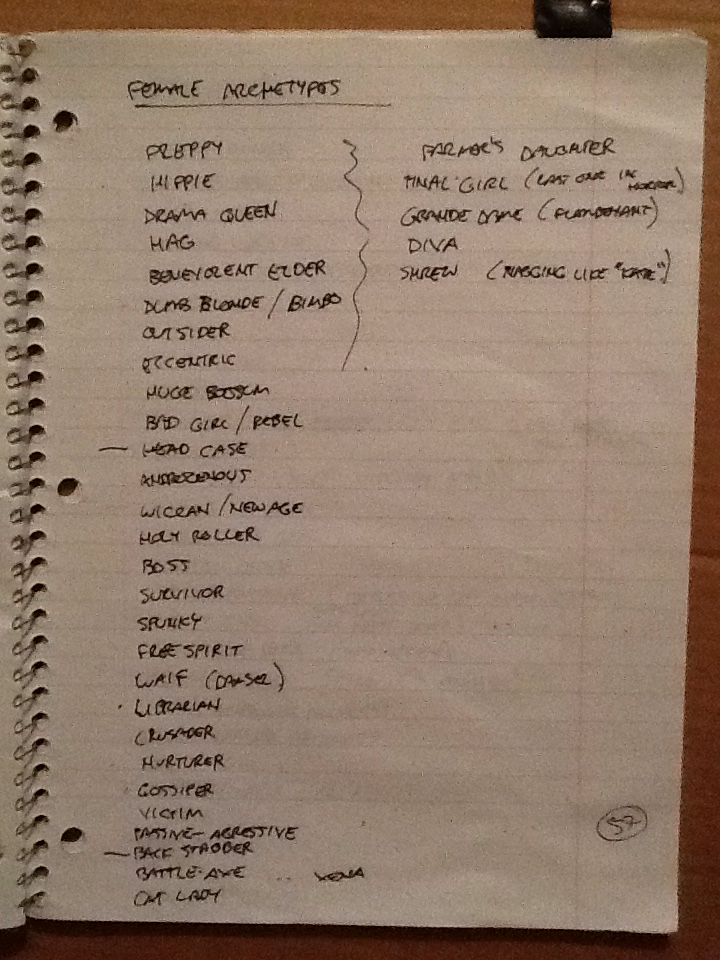 FEMALE ARCHETYPES
PREPPY
HIPPIE
DRAMA QUEEN
HAG
BENEVOLENT ELDER
DUMB BLONDE / BIMBO
OUTSIDER
ECCENTRIC
HUGE BOSSUM
BAD GIRL / REBEL
— HEAD CASE
ANDROGENOUS
WICCAN / NEW AGE
HOLY ROLLER
BOSS
SURVIVOR
SPUNKY
FREE SPIRIT
WAIF (DAMSEL)
LIBRARIAN
CRUSADER
NURTURER
GOSSIPER
VICTIM
PASSIVE-AGRESSIVE
— BACK STABBER
BATTLE-AXE .. XENA
CAT LADY
FARMER'S DAUGHTER
FINAL GIRL (LAST ONE IN HORROR)
GRANDE DAME (FLAMBOYANT)
DIVA
SHREW (NAGGING LIKE "KATE")
57